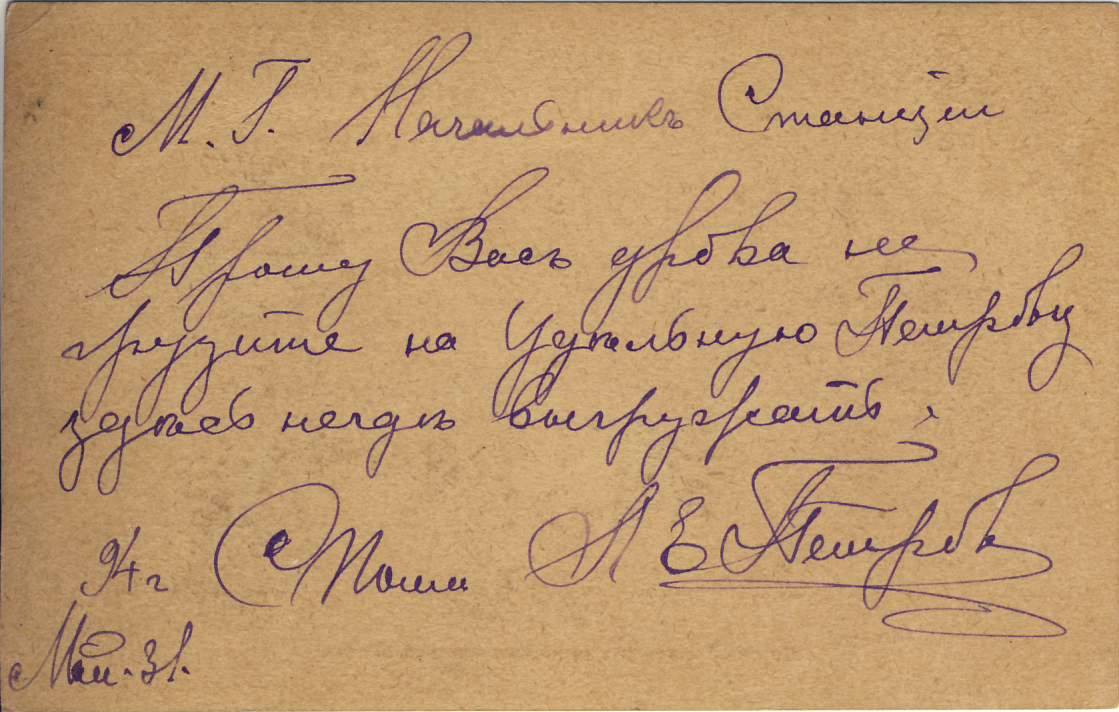 М. Г. Начальникъ Станціи
Прошу Васъ дрова не
грузите на Удѣльную Петрову
здѣсь негдѣ выгружать.
94 г А Е Петровъ
Май. 31.